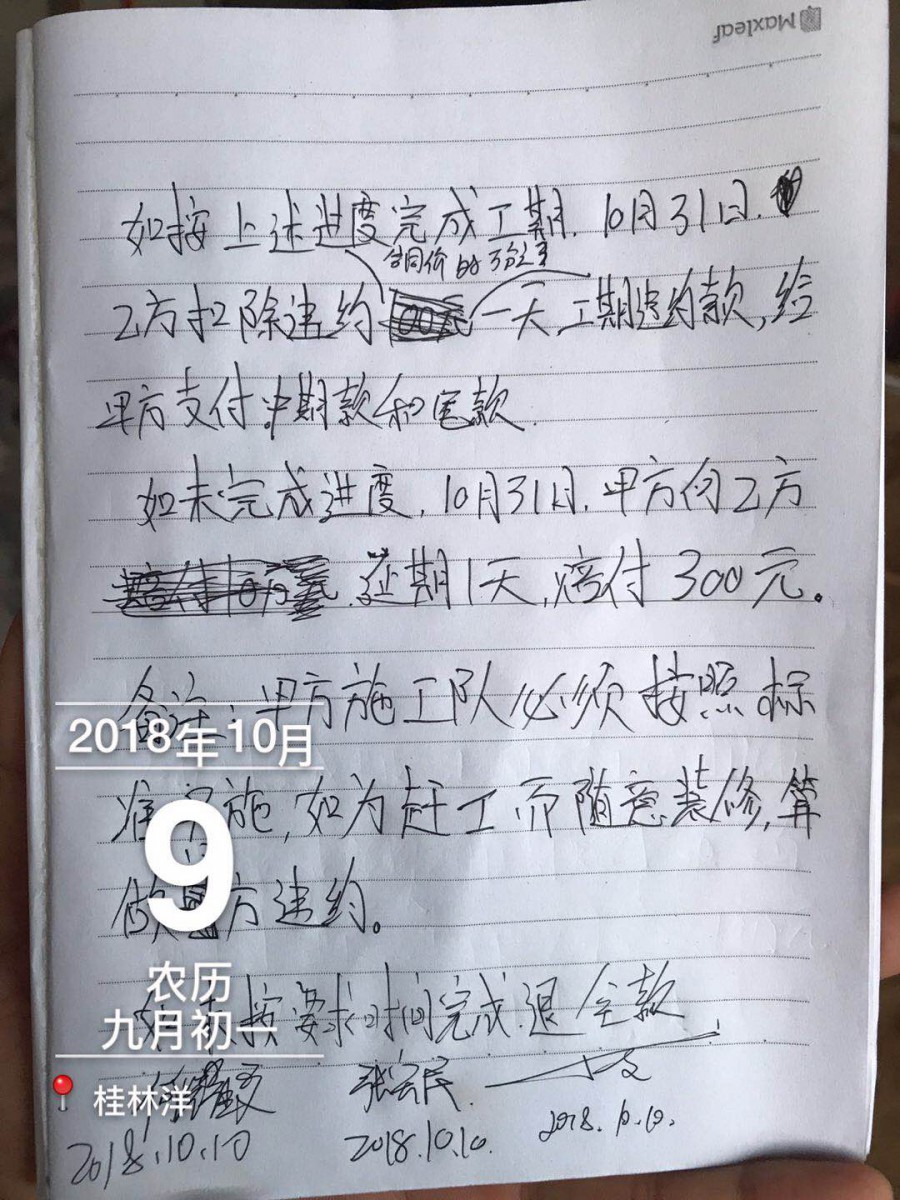 Maxleaf
如按上述进度完成工期.10月31日.
合同价的万分之
乙方扣除违约 一天,工期违约款,给
甲方支付中期款和尾款.
如未完成进度,10月31日.甲方向乙方
赔付10月 .延期1天,赔付300元。
备注:甲方施工队必须按照标
准 施,如为赶工而随意装修,算
做 方违约。
按要求时间完成.退全款
张宗民
2018.10.10 2018.10.10. 2018.10.10.
2018年10月
9
农历
九月初一
桂林洋